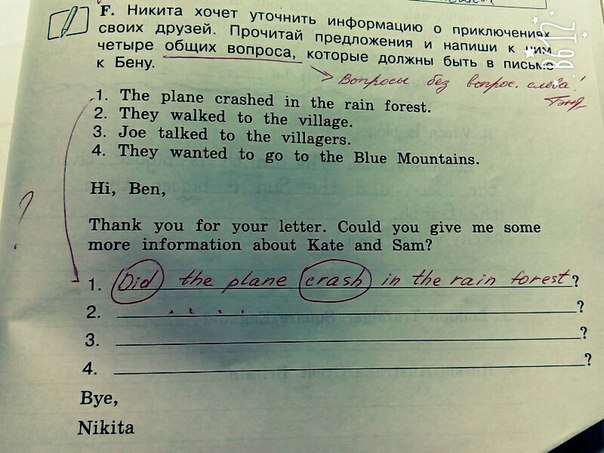 F. Никита хочет уточнить информацию о приключениях
своих друзей. Прочитай предложения и напиши к ним
четыре общих вопроса, которые должны быть в письме
к Бену.
Вопросы без вопрос. слова!
1. The plane crashed in the rain forest.
2. They walked to the village.
3. Joe talked to the villagers.
4. They wanted to go to the Blue Mountains.
Hi, Ben,
Thank you for your letter. Could you give me some
more information about Kate and Sam?
?
1. Did the plane crash in the rain forest?
2. ?
3. ?
4. ?
Bye,
Nikita